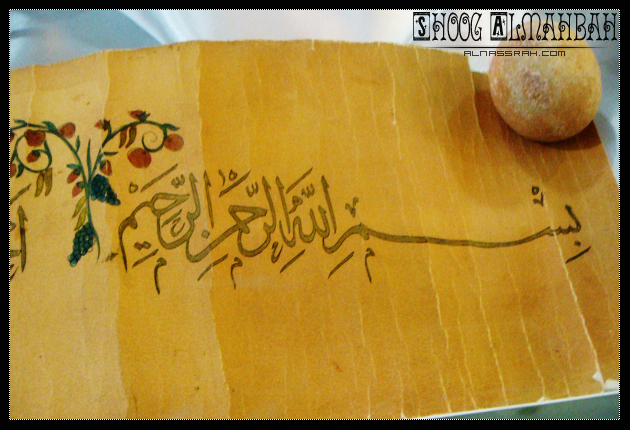 Shoog Almahbah
alnassrah.com
بِسْمِ اللَّهِ الرَّحْمَنِ الرَّحِيمِ